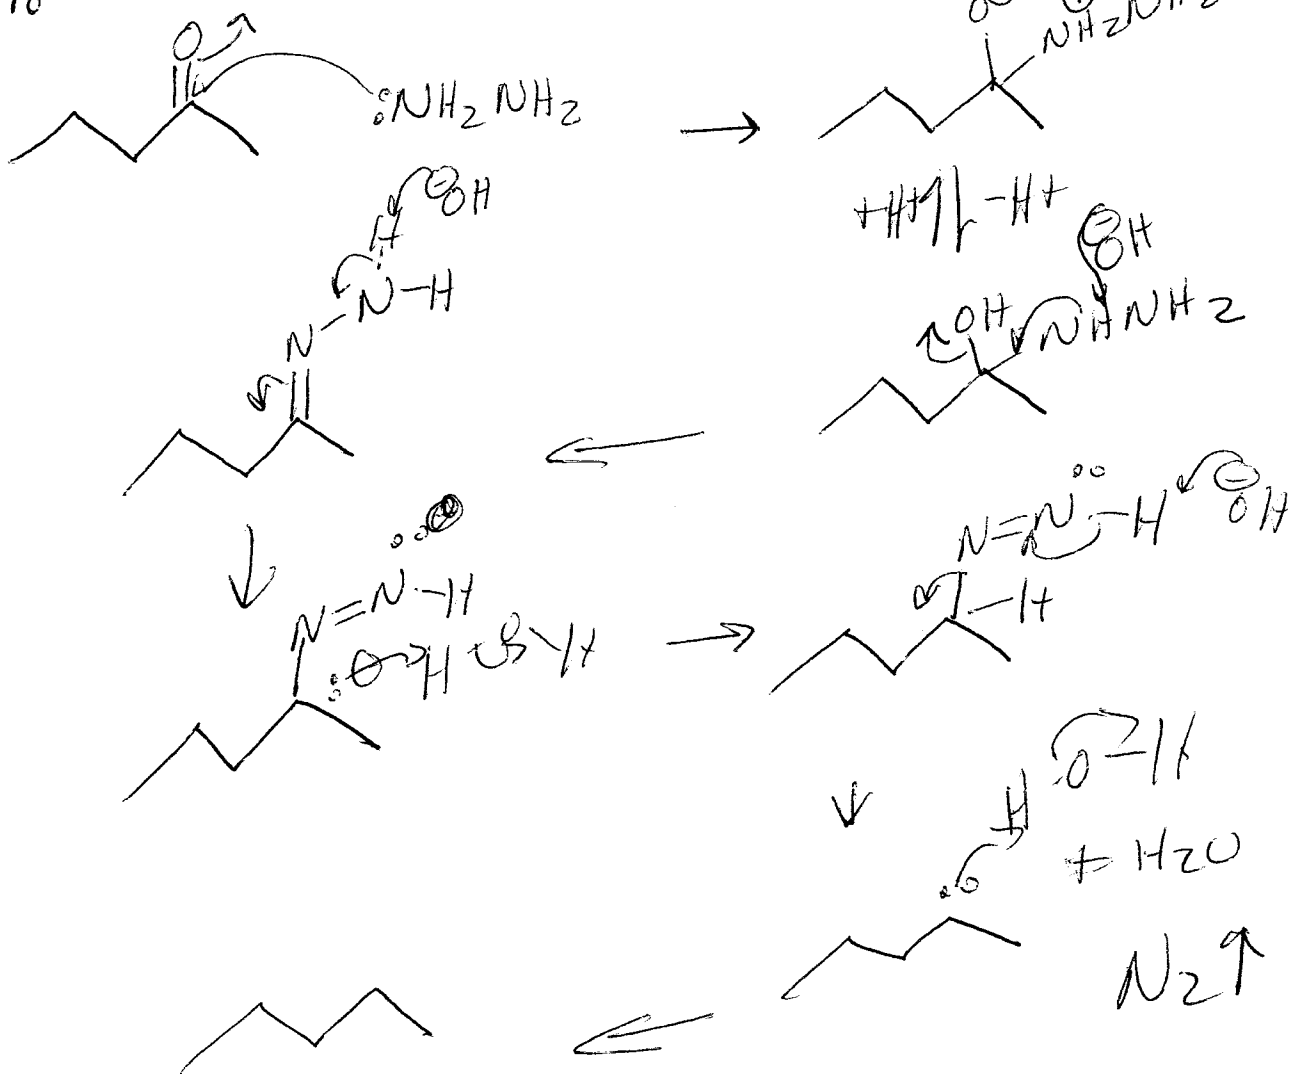 O
:NH2NH2
NH2NH2
⊖OH
H
N-H
N
+H+ -H+
⊖OH
OH NHNH2
N=N-H
⊖OH
H
N=N-H
:⊖ H O H
H O-H
+ H2O
N2↑